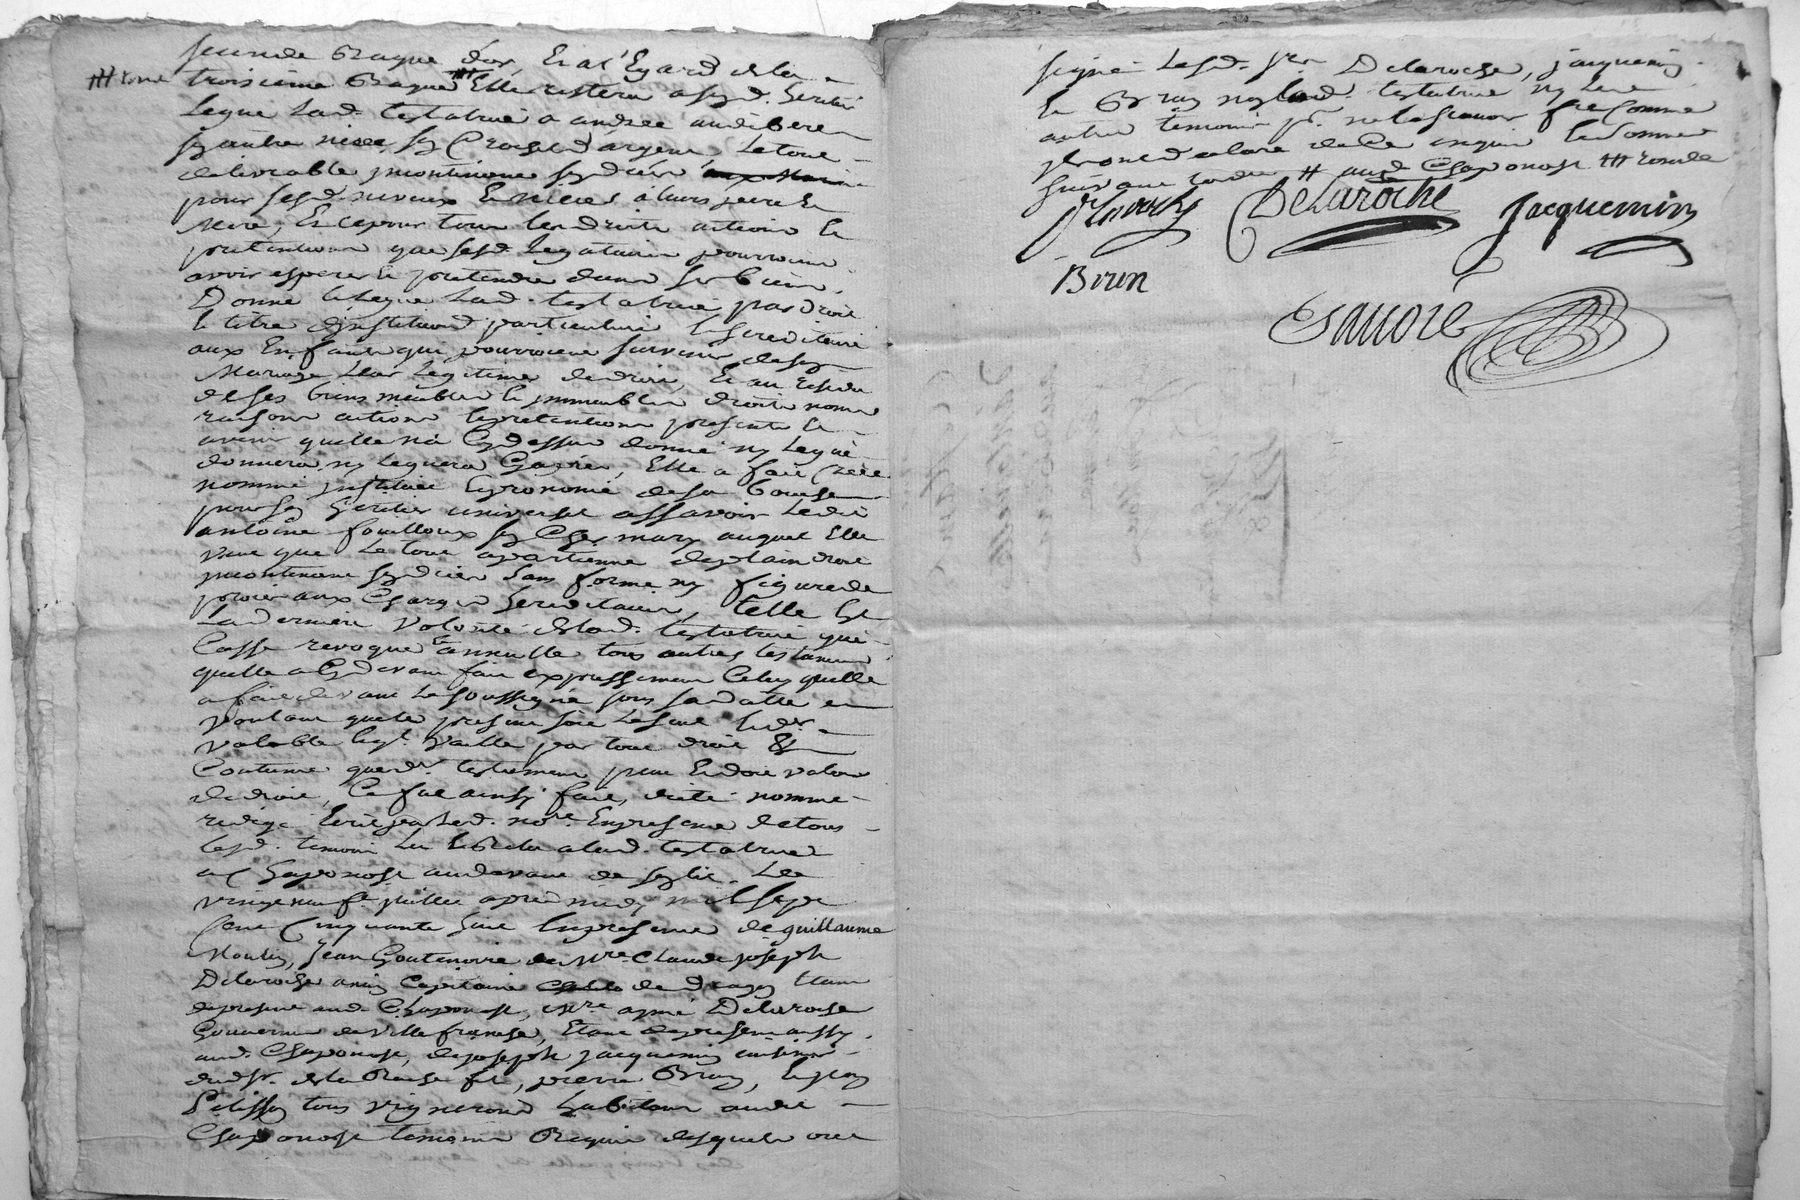 seconde Bague d'or, Et a l'Egard de la
troisieme Bague Elle restera a sond. heritier
Legue lad. testatrice a
sa autre niece, sa Croix d'argent, Le tout
delivrable incontinent son deces
pour sesd. neveux Et nieces a leurs pere Et
Mere, Et ce pour tous les droits actions Et
pretentions que sesd. Legataires pourroient
avoir esperer Et pretendre dans ses biens,
Donne Et Legue Lad. testatrice par droit
Et titre d'institution particuliere Et hereditaire
aux Enfants qui pourroient survenir de son
Mariage Leur Legitime de droit, Et au Residu
de ses biens meubles Et immeubles droits noms
raisons actions Et pretentions presents Et
avenir quelle n'a Cy dessus donné ny Legué
donnera ny Leguera Cy apres, Elle a fait Créé
nommé institué Et prononcé de sa bouche
pour son heritier universel assavoir Ledit
antoine fouilloux son Cher mary auquel Elle
veut que Le tout apartienne de plain droit
incontinent son deces sans forme ny figure de
proces aux Charges hereditaires, telle Est
La derniere volonté de lad. testatrice qui
Casse revoque Et annulle tous autres testament
quelle a Cy devant fait expressement Celuy quelle
a fait devant Le soussigné sous sa datte
voulant que le present soit Le seul
valable Et qu'il vaille par tout droit &
Coutume que dr. testament peut Et doit valoir
de droit, Ce fut ainsy fait, dicté nommé
redigé Ecrit par led. nore. En presence de tous
lesd. temoins Lu Et Relu a lad. testatrice
a Chaponost au devant de l'eglise Le
vingt neuf juillet apres midy mil sept
Cent Cinquante huit En presence de guillaume
Moulin, jean Goutenoire de Mre. Claude joseph
Delaroche ancien Capitaine de dragon Etant
de present aud. Chaponost, Mre. aymé Delaroche
Gouverneur de villefranche, Etant de present aussy
aud. Chaponost, de joseph jacquemin cuisinier
dud. sr. de la Roche fils, pierre Brun,
Pelisson tous vignerons habitant audit
Chaponost temoins Requis desquels ont
signé Lesd. srs. Delaroche, jacquemin
Et Brun non lad. testatrice ny Les
autres temoins pr. ne le scavoir faire Comme
ils ont declaré de Ce enquis Et sommés
suivant l'ordce. aud. Chaponost
DeLaroche Jacquemin
Brun